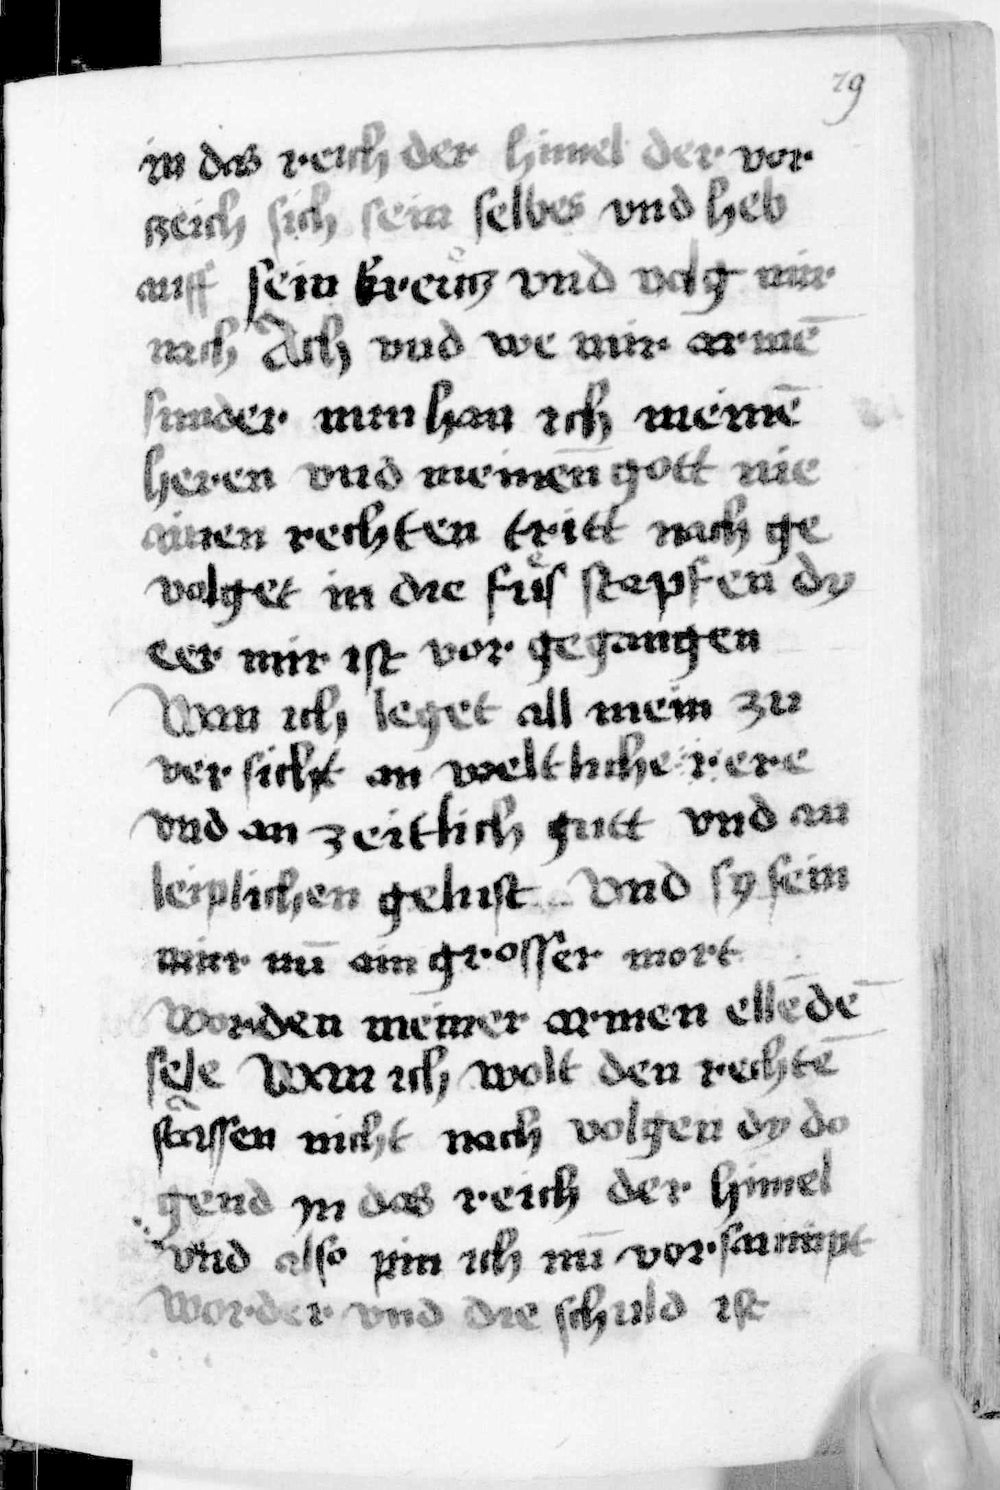 79
in das reich der himel der vor
zeich sich sein selbes vnd heb
auff sein kreuͤtz vnd volg mir
nach Ach vnd we mir armē
sunder nun han ich meinē
heren vnd meinen̄ gott nie
ainen rechten tritt nach ge
volget in die fuͤs stapfen dy
eer mir ist vor gegangen
Wan ich leget all mein zu
versicht an weltliche ere
vnd an zeitlich gutt vnd an
leiplichen gelust Vnd sy sein
mir nū ain grosser mort
worden meiner armen ellēdē
sele Wan ich wolt den rechtē
strassen nicht nach volgen dy do
gend in das reich der himel
vnd also pin ich nū vorsaumpt
worder vnd die schuld ist